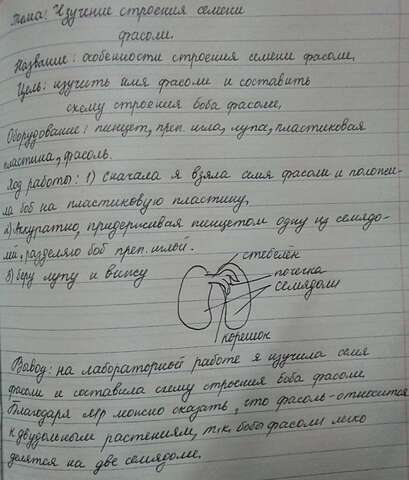 Тема: Изучение строения семени
фасоли.
Название: особенности строения семени фасоли.
Цель: изучить имя фасоли и составить
схему строения боба фасоли.
Оборудование: пинцет, преп. игла, лупа, пластиковая
пластина, фасоль.
Ход работы: 1) Сначала я взяла семя фасоли и положи-
ла боб на пластиковую пластину.
2) Аккуратно, придерживая пинцетом одну из семядо-
лей, разделяю боб преп. иглой.
3) беру лупу и вижу
стебелёк
почечка
семядоли
корешок
Вывод: на лабораторной работе я изучила семя
фасоли и составила схему строения боба фасоли.
Благодаря лр можно сказать, что фасоль - относится
к двудольным растениям, т.к. бобы фасоли легко
делятся на две семядоли.